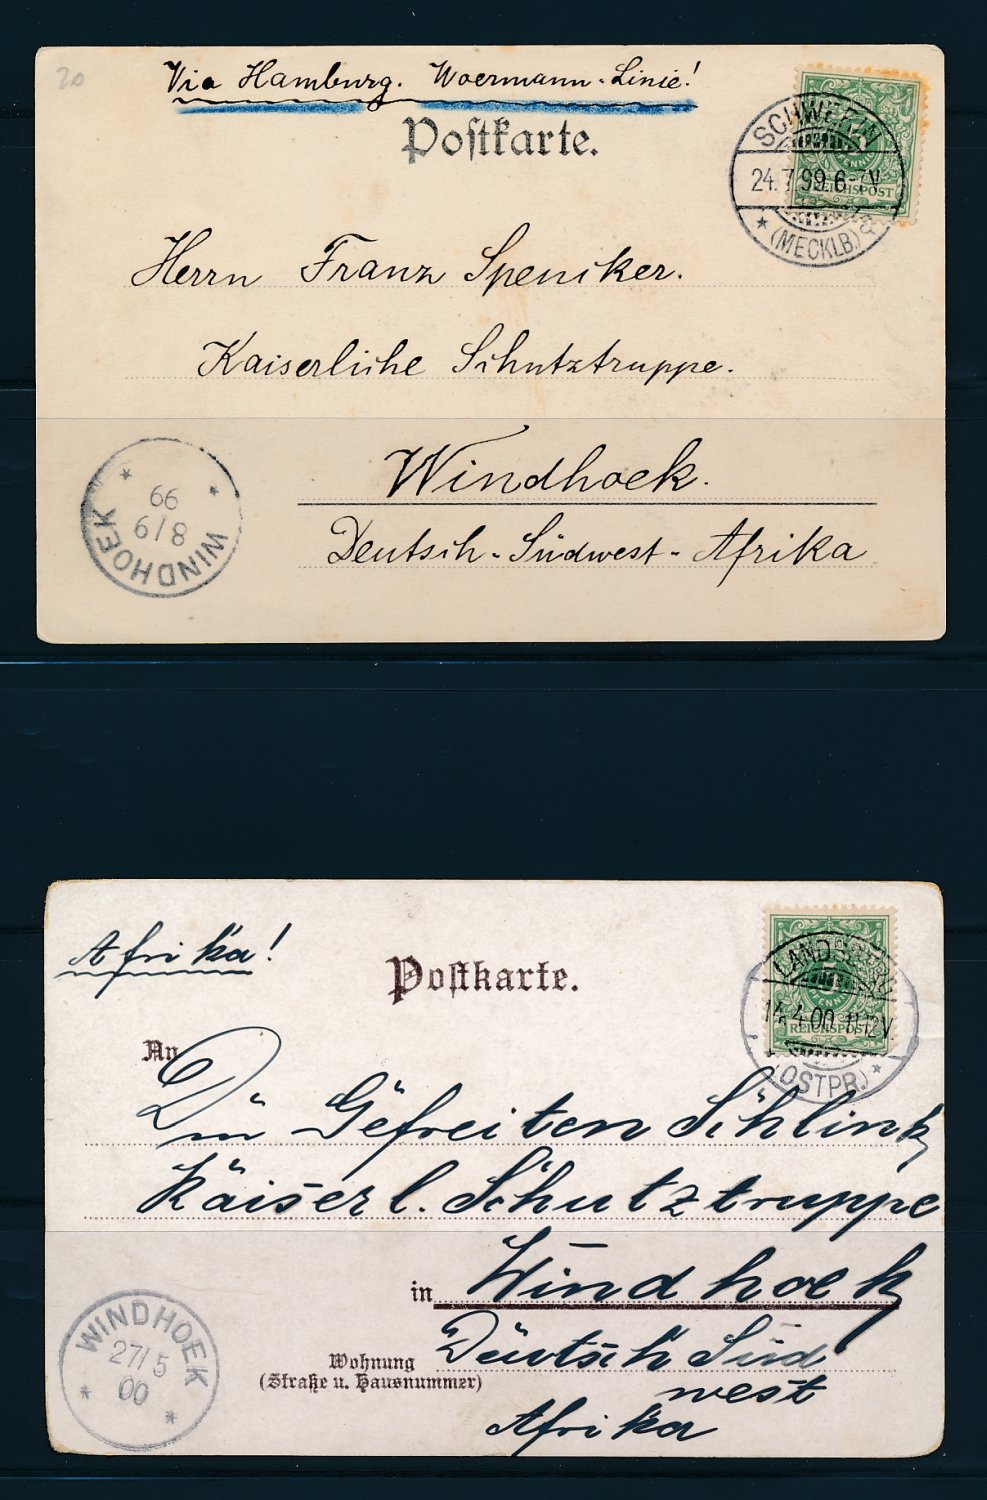 20
Via Hamburg. Woermann-Linie!
Postkarte.
SCHWERIN
24.7.99.6-7V.
* (MECKLB.) a
REICHSPOST
Herrn Franz Speniker.
Kaiserliche Schutztruppe.
Windhoek.
Deutsch-Südwest-Afrika
WINDHOEK
8/9
99
Afrika!
Postkarte.
5
PFENNIG
REICHSPOST
14.4.00.11-12V
(OSTPR.) *
An
Gefreiten Schlink
Kaiserl. Schutztruppe
in Windhoek
Deutsch Süd
west
Afrika
Wohnung
(Straße u. Hausnummer)
WINDHOEK
27/5
00